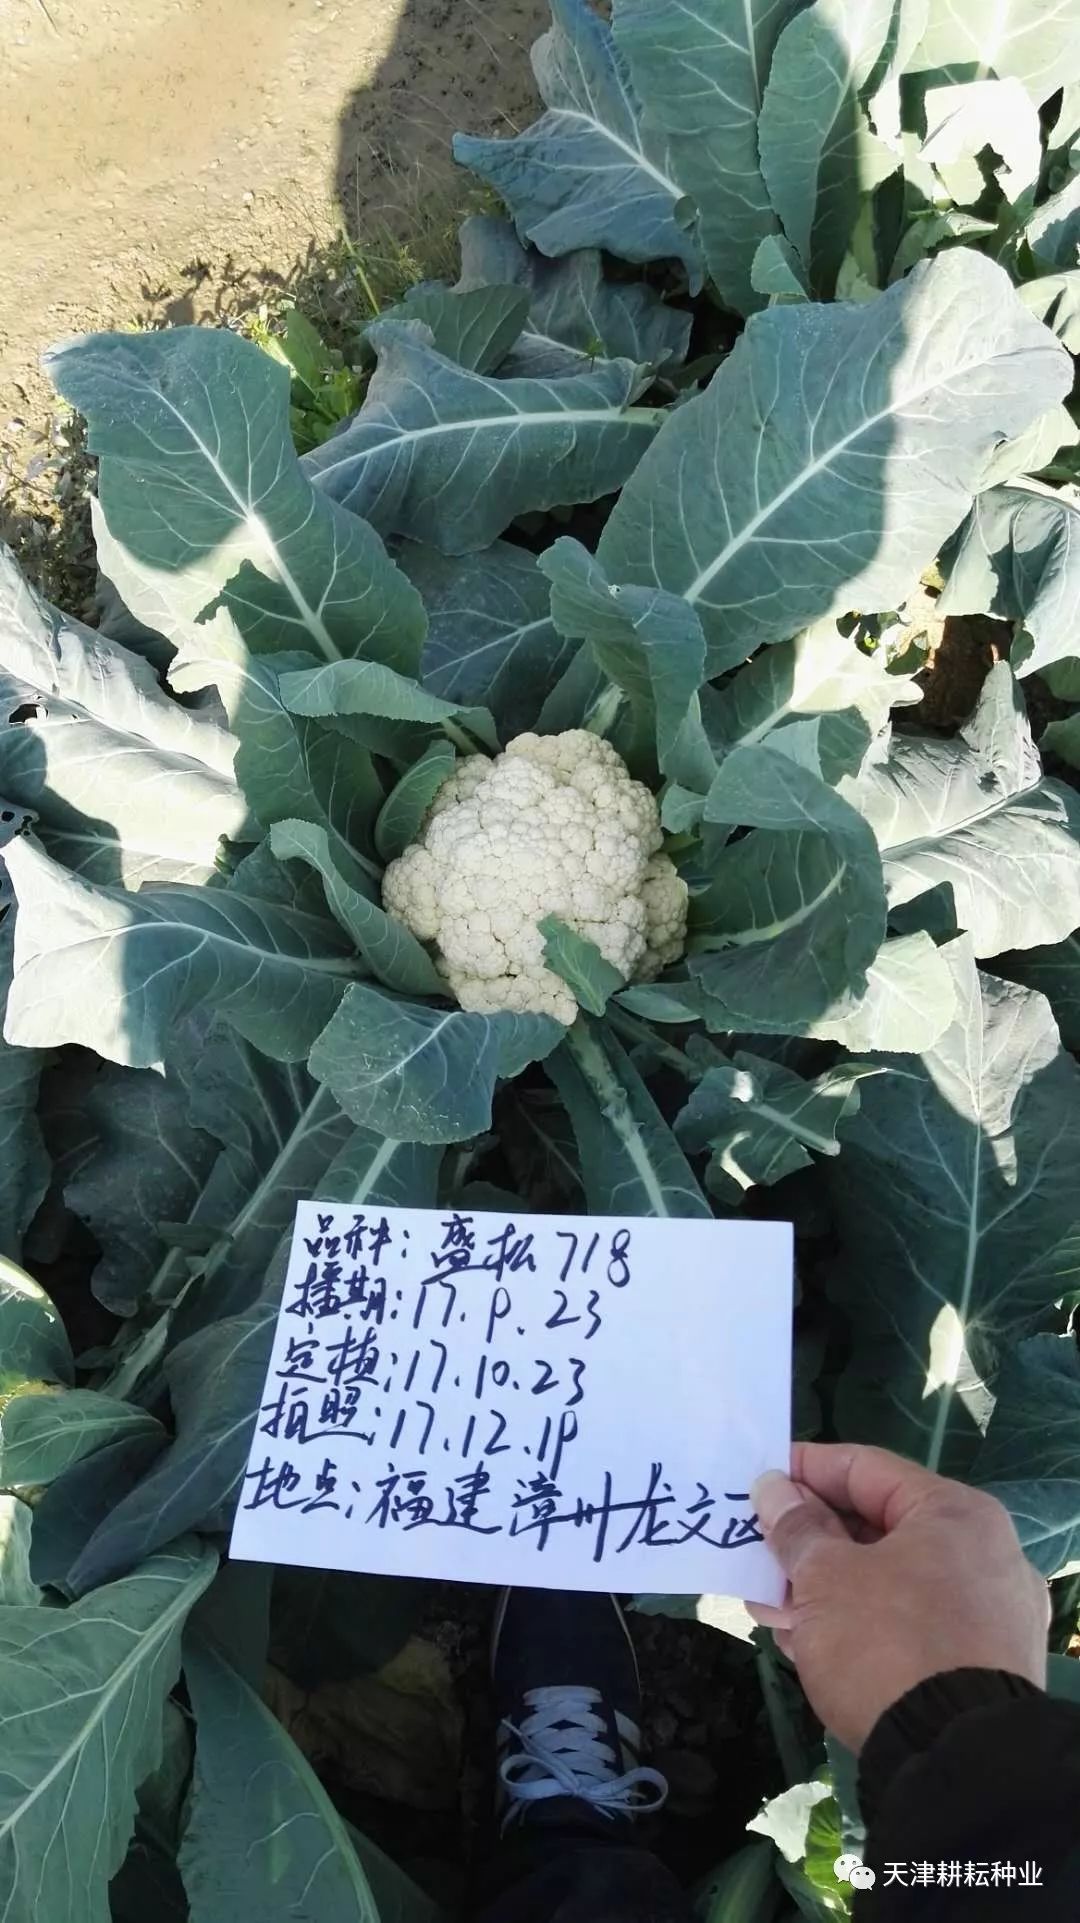 品种：盛松718
播期：17.9.23
定植：17.10.23
拍照：17.12.19
地点：福建漳州龙文区
天津耕耘种业